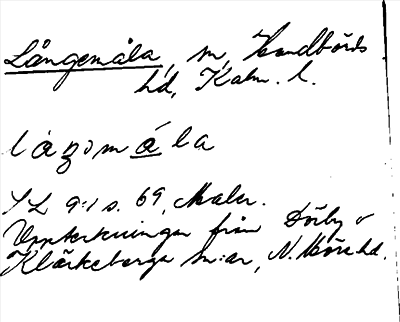 Långemåla, sn, Handbörds
hd, Kalm. l.
SL 9:1 s. 69, Malm.
Uppteckningar från Dörby o
Kläckeberga sn:ar, N. Möre hd.